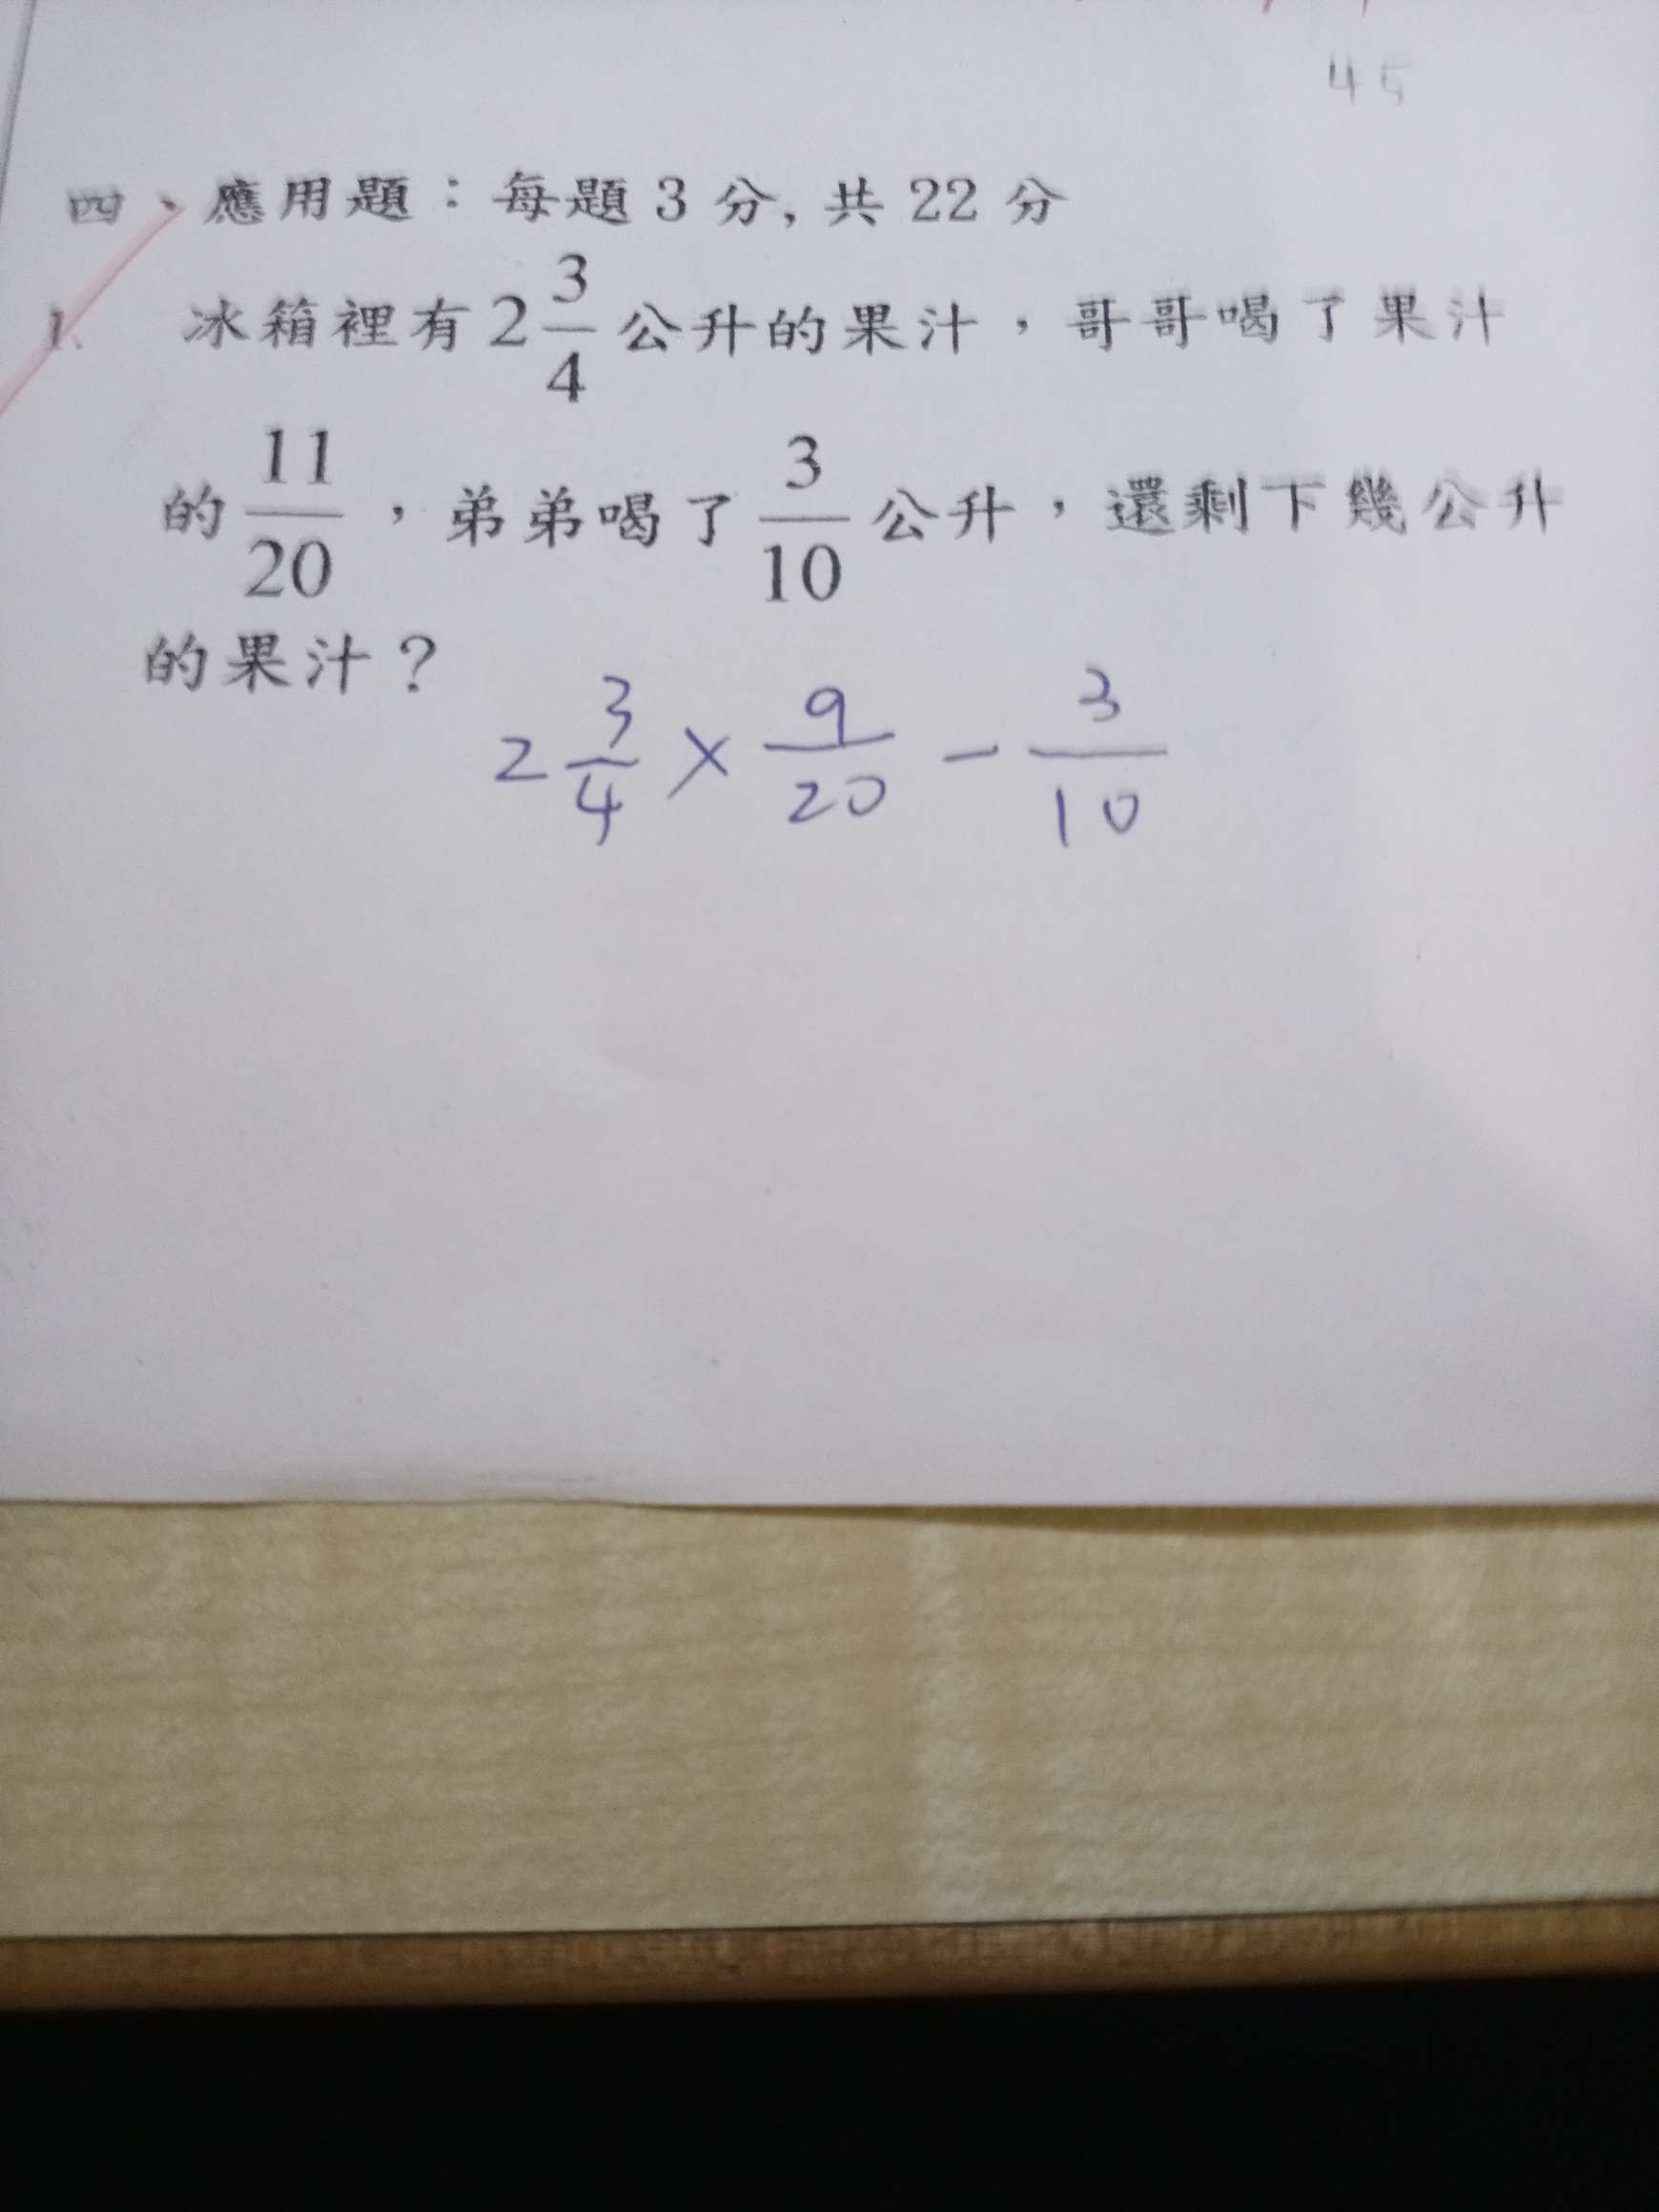 45
四、應用題：每題 3 分, 共 22 分
1. 冰箱裡有 2 3/4 公升的果汁，哥哥喝了果汁
的 11/20 ，弟弟喝了 3/10 公升，還剩下幾公升
的果汁？
2 3/4 × 9/20 − 3/10